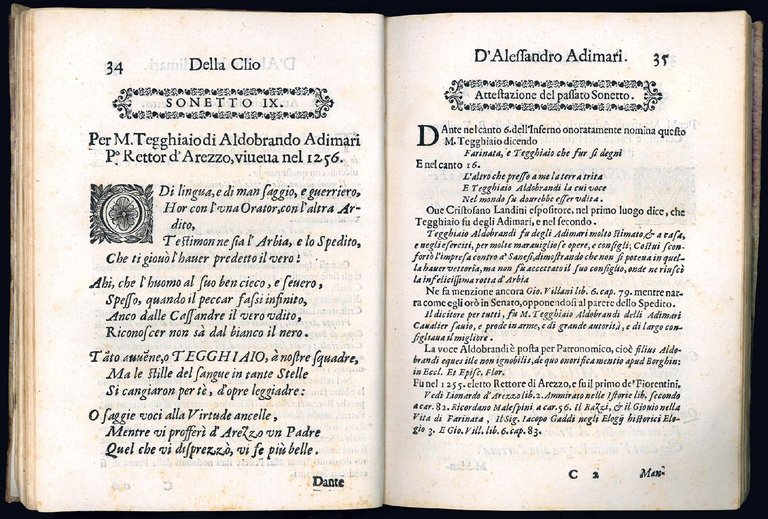 34
Della Clio
SONETTO IX.
Per M. Tegghiaio di Aldobrando Adimari
P.º Rettor d'Arezzo, viueua nel 1256.
O Di lingua, e di man saggio, e guerriero,
Hor con l'vna Orator, con l'altra Ar-
dito,
Testimon ne sia l'Arbia, e lo Spedito,
Che ti giouò l'hauer predetto il vero?
Ahi, che l'huomo al suo ben cieco, e seuero,
Spesso, quando il peccar fassi infinito,
Anco dalle Cassandre il vero vdito,
Riconoscer non sà dal bianco il nero.
Tāto auuēne, ò TEGGHIAIO, à nostre squadre,
Ma le stille del sangue in tante Stelle
Si cangiaron per tè, d'opre leggiadre:
O saggie voci alla Virtude ancelle,
Mentre vi profferì d'Arezzo vn Padre
Quel che vi disprezzò, vi fe più belle.
Dante
D'Alessandro Adimari.
35
Attestazione del passato Sonetto.
DAnte nel canto 6. dell'Inferno onoratamente nomina questo
M. Tegghiaio dicendo
Farinata, e Tegghiaio che fur sì degni
E nel canto 16.
L'altro che presso a me la terra trita
E Tegghiaio Aldobrandi la cui voce
Nel mondo su dourebbe esser vdita.
Oue Cristofano Landini espositore, nel primo luogo dice, che
Tegghiaio fu degli Adimari, e nel secondo.
Tegghiaio Aldobrandi fu degli Adimari molto stimato & a casa,
e negli eserciti, per molte marauigliose opere, e consigli; Costui scon-
fortò l'impresa contro a' Sanesi, dimostrando che non si poteua in quel-
la hauer vettoria, ma non fu accettato il suo consiglio, onde ne riuscì
la infelicissima rotta d'Arbia
Ne fa menzione ancora Gio. Villani lib. 6. cap. 79. mentre nar-
ra come egli orò in Senato, opponendosi al parere dello Spedito.
Il dicitore per tutti, fu M. Tegghiaio Aldobrandi delli Adimari
Caualier sauio, e prode in arme, e di grande autorità, e di largo con-
sigliaua il migliore.
La voce Aldobrandi è posta per Patronomico, cioè filius Aldo-
brandi eques ille non ignobilis, de quo onorifica mentio apud Borghin:
in Eccl. Et Episc. Flor.
Fù nel 1255. eletto Rettore di Arezzo, e fu il primo de' Fiorentini.
Vedi Lionardo d'Arezzo lib. 2. Ammirato nelle Istorie lib. secondo
a car. 82. Ricordano Malespini a car. 56. Il Razzi, & il Giouio nella
Vita di Farinata, Il Sig. Iacopo Gaddi negli Elogij historici Elo-
gio 3. E Gio. Vill. lib. 6. cap. 83.
C 2
Man-